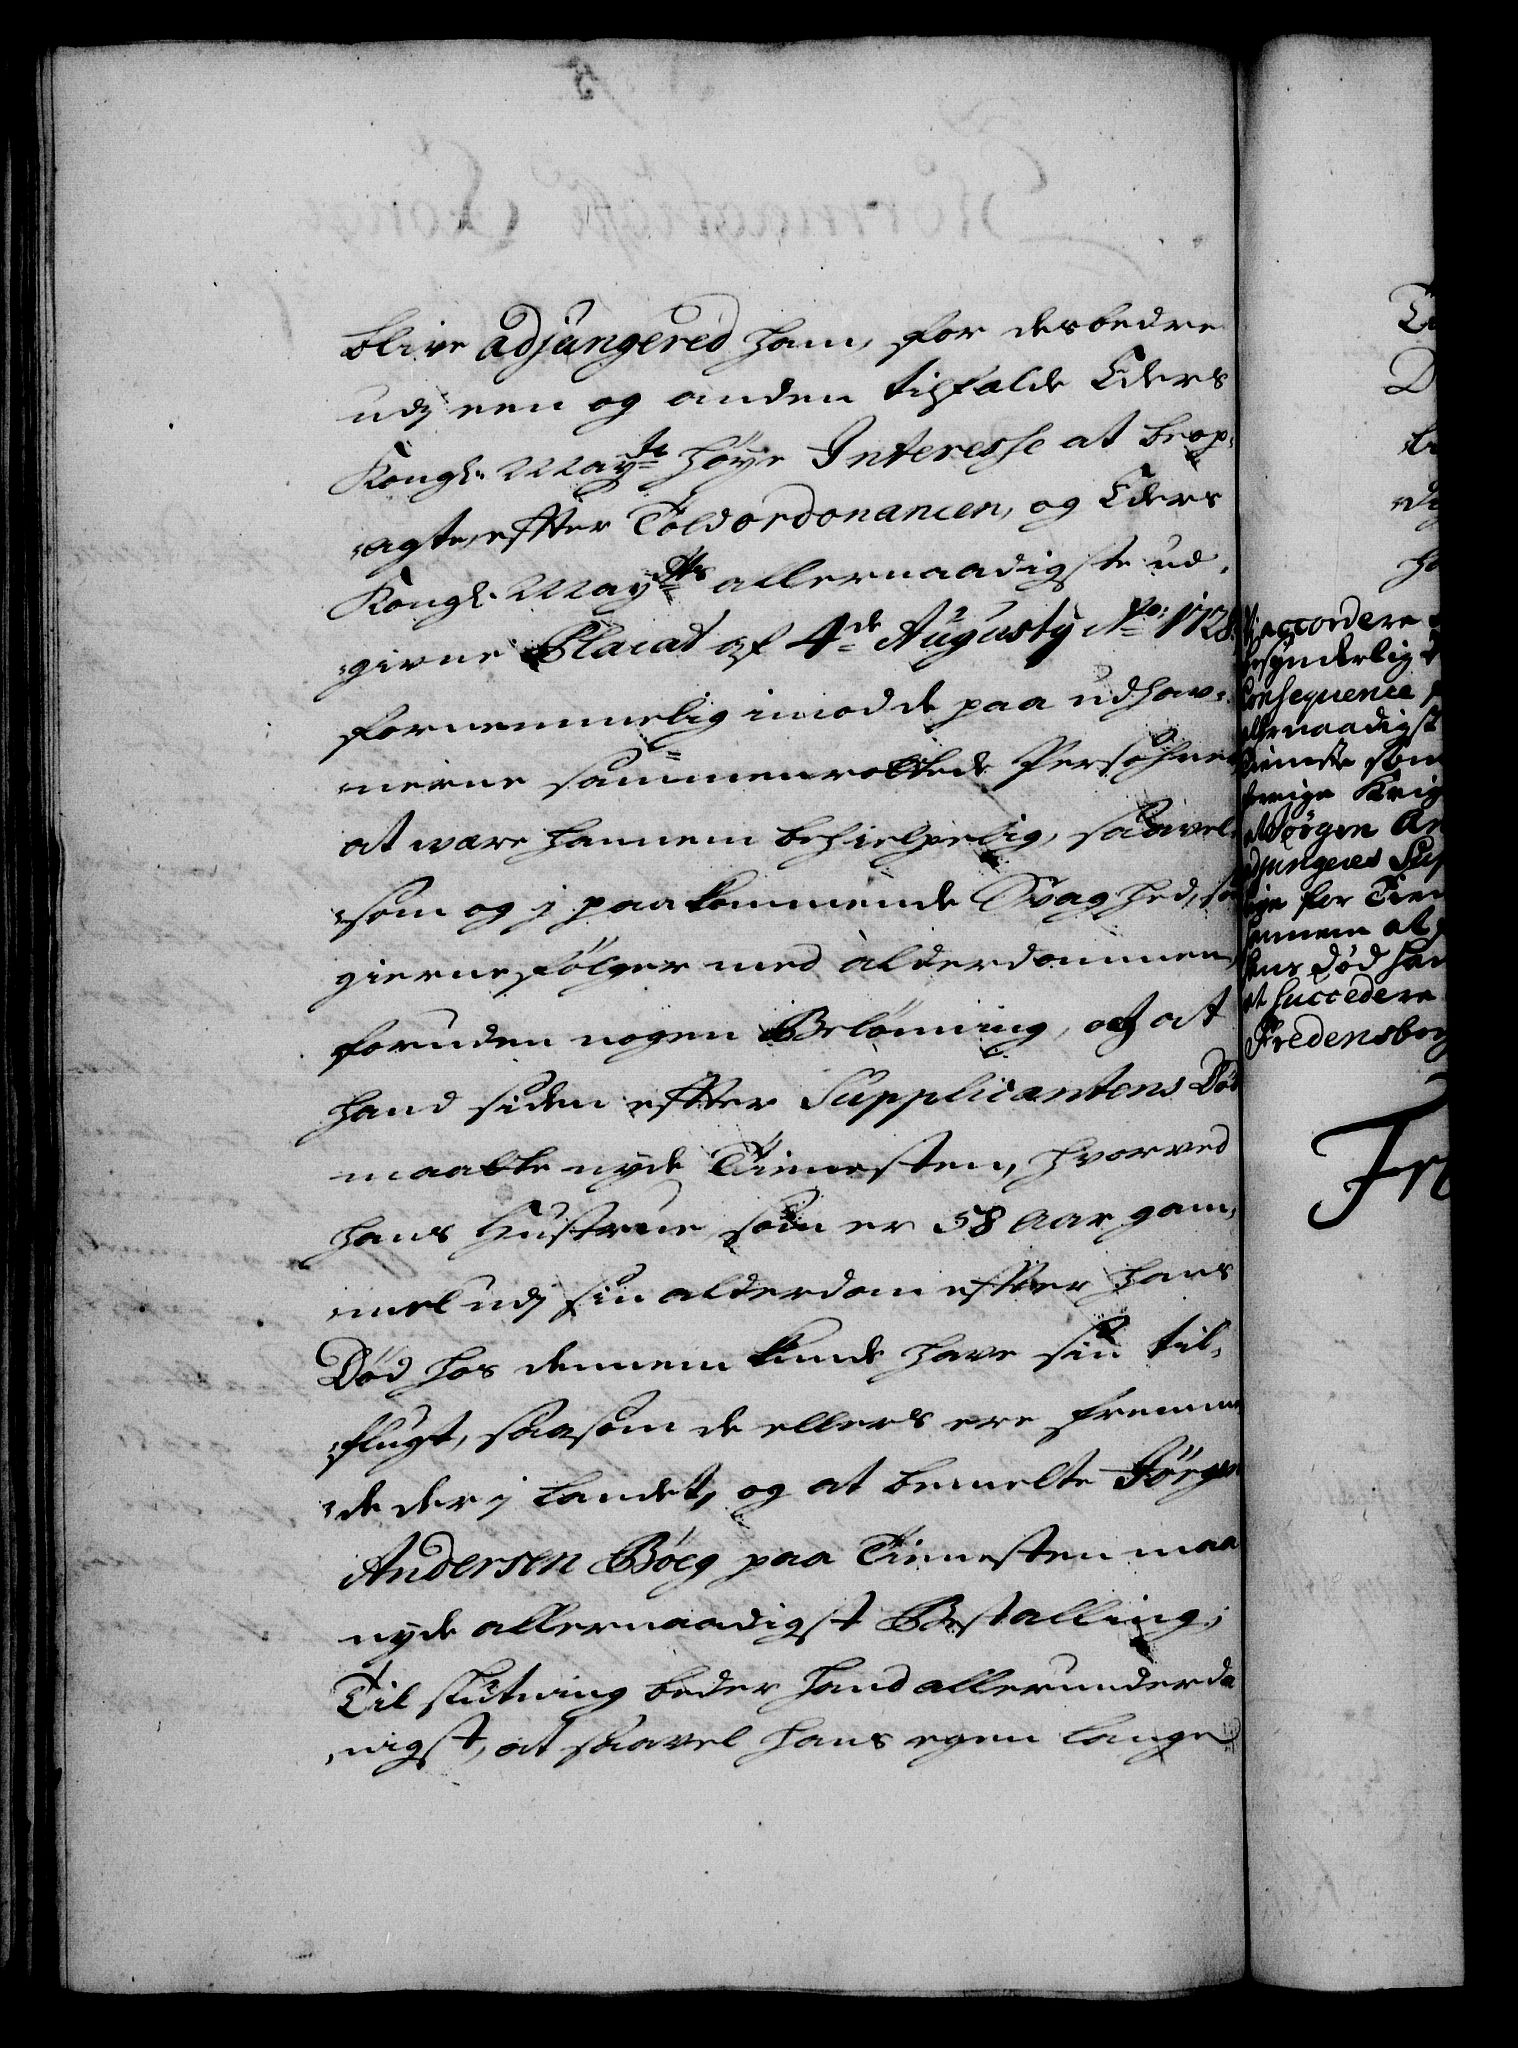 blive adjungered ham, for desbedre
udj een og anden tilfælde Eders
Kongl. Mayts høye Interesse at beop-
-agte, efter Toldordonancen, og Eders
Kongl. Mayts allernaadigste ud-
-givne Placat af 4de Augusty Ao 1728.
fornemmelig imod de paa udhav-
-nerne sammenrottede Persohner
at være hannem behielpelig, saavel
-som og j paakommende Svaghed, som
gierne følger med alderdommen,
foruden nogen Belønning, og at
hand siden efter Supplicantens Død
maatte nyde Tienesten, hvorved
hans Hustrue som er 58 Aar gam-
-mel udj sin alderdom efter hans
Død hos dennem kunde have sin til-
-flugt, saasom de ellers ere fremme
-de der j Landet, og at bemelte Jørgen
Andersen Bøeg paa Tienesten maa
nyde allernaadigst Bestalling;
Til slutning beder hand allerunderda
-nigst, at saavel hans egen lange
accordere
besynderlig
Consequence
allernaadigst
Tieneste som
forige Krig
Jørgen An
adjungeres Sup
for Tien
hannem at
hans død han
at succedere
Fredensborg
Fr